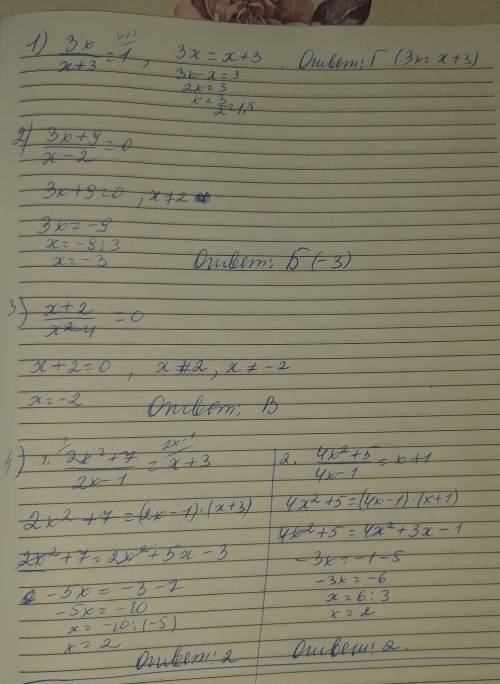 1) 3x/(x+3) = 1 , 3x = x+3 . Ответ: Г (3x = x+3)
3x-x=3
2x=3
x=3/2=1,5
2) (3x+9)/(x-2) = 0
3x+9=0 , x≠2
3x=-9
x=-9:3
x=-3
Ответ: Б (-3)
3) (x+2)/(x²-4) = 0
x+2=0 , x≠2, x≠-2
x=-2
Ответ: В
4) 1. (2x²+7)/(2x-1) = x+3
2x²+7=(2x-1)·(x+3)
2x²+7=2x²+5x-3
-5x=-3-7
-5x=-10
x=-10:(-5)
x=2
Ответ: 2
2. (4x²+5)/(4x-1) = x+1
4x²+5=(4x-1)·(x+1)
4x²+5=4x²+3x-1
-3x=-1-5
-3x=-6
x=6:3
x=2
Ответ: 2.